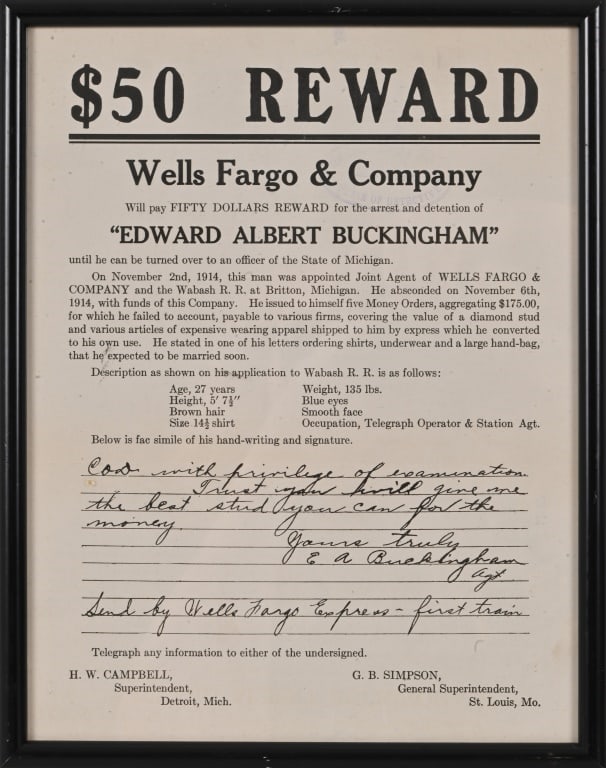 $50 REWARD
Wells Fargo & Company
Will pay FIFTY DOLLARS REWARD for the arrest and detention of
“EDWARD ALBERT BUCKINGHAM”
until he can be turned over to an officer of the State of Michigan.
On November 2nd, 1914, this man was appointed Joint Agent of WELLS FARGO &
COMPANY and the Wabash R. R. at Britton, Michigan. He absconded on November 6th,
1914, with funds of this Company. He issued to himself five Money Orders, aggregating $175.00,
for which he failed to account, payable to various firms, covering the value of a diamond stud
and various articles of expensive wearing apparel shipped to him by express which he converted
to his own use. He stated in one of his letters ordering shirts, underwear and a large hand-bag,
that he expected to be married soon.
Description as shown on his application to Wabash R. R. is as follows:
Age, 27 years Weight, 135 lbs.
Height, 5' 7½" Blue eyes
Brown hair Smooth face
Size 14½ shirt Occupation, Telegraph Operator & Station Agt.
Below is fac simile of his hand-writing and signature.
COD with privilege of examination
Trust you will give me
the best stud you can for the
money.
Yours truly
E A Buckingham
Agt
Send by Wells Fargo Express - first train
Telegraph any information to either of the undersigned.
H. W. CAMPBELL, G. B. SIMPSON,
Superintendent, General Superintendent,
Detroit, Mich. St. Louis, Mo.